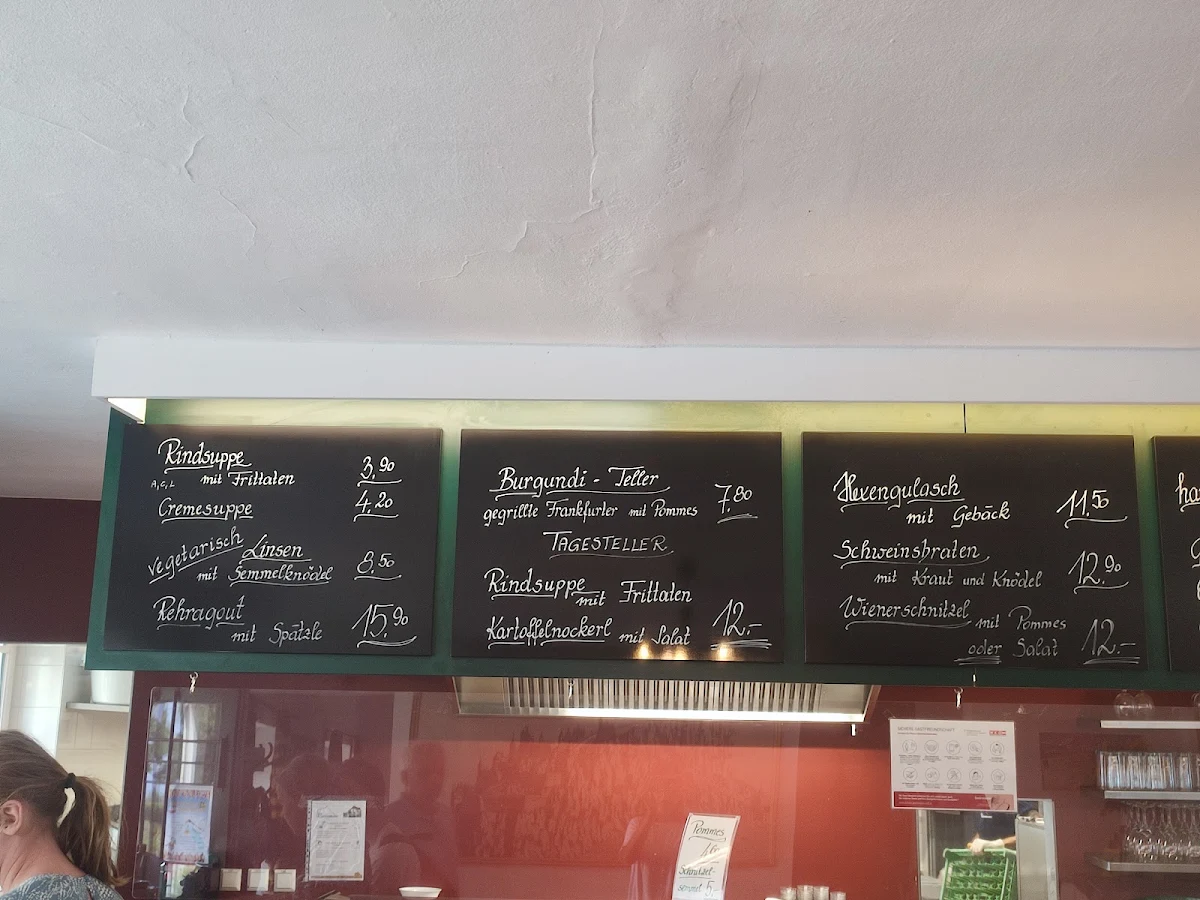 Rindsuppe
A, C, L mit Frittaten 3,90
Cremesuppe 4,20
vegetarisch Linsen
mit Semmelknödel 8,50
Rehragout
mit Spätzle 15,90
Burgundi - Teller
gegrillte Frankfurter mit Pommes 7,80
TAGESTELLER
Rindsuppe mit Frittaten
Kartoffelnockerl mit Salat 12.-
Hexengulasch
mit Gebäck 11,50
Schweinsbraten
mit Kraut und Knödel 12,90
Wienerschnitzel mit Pommes
oder Salat 12.-
Pommes
Schnitzel-
semmel 5,-